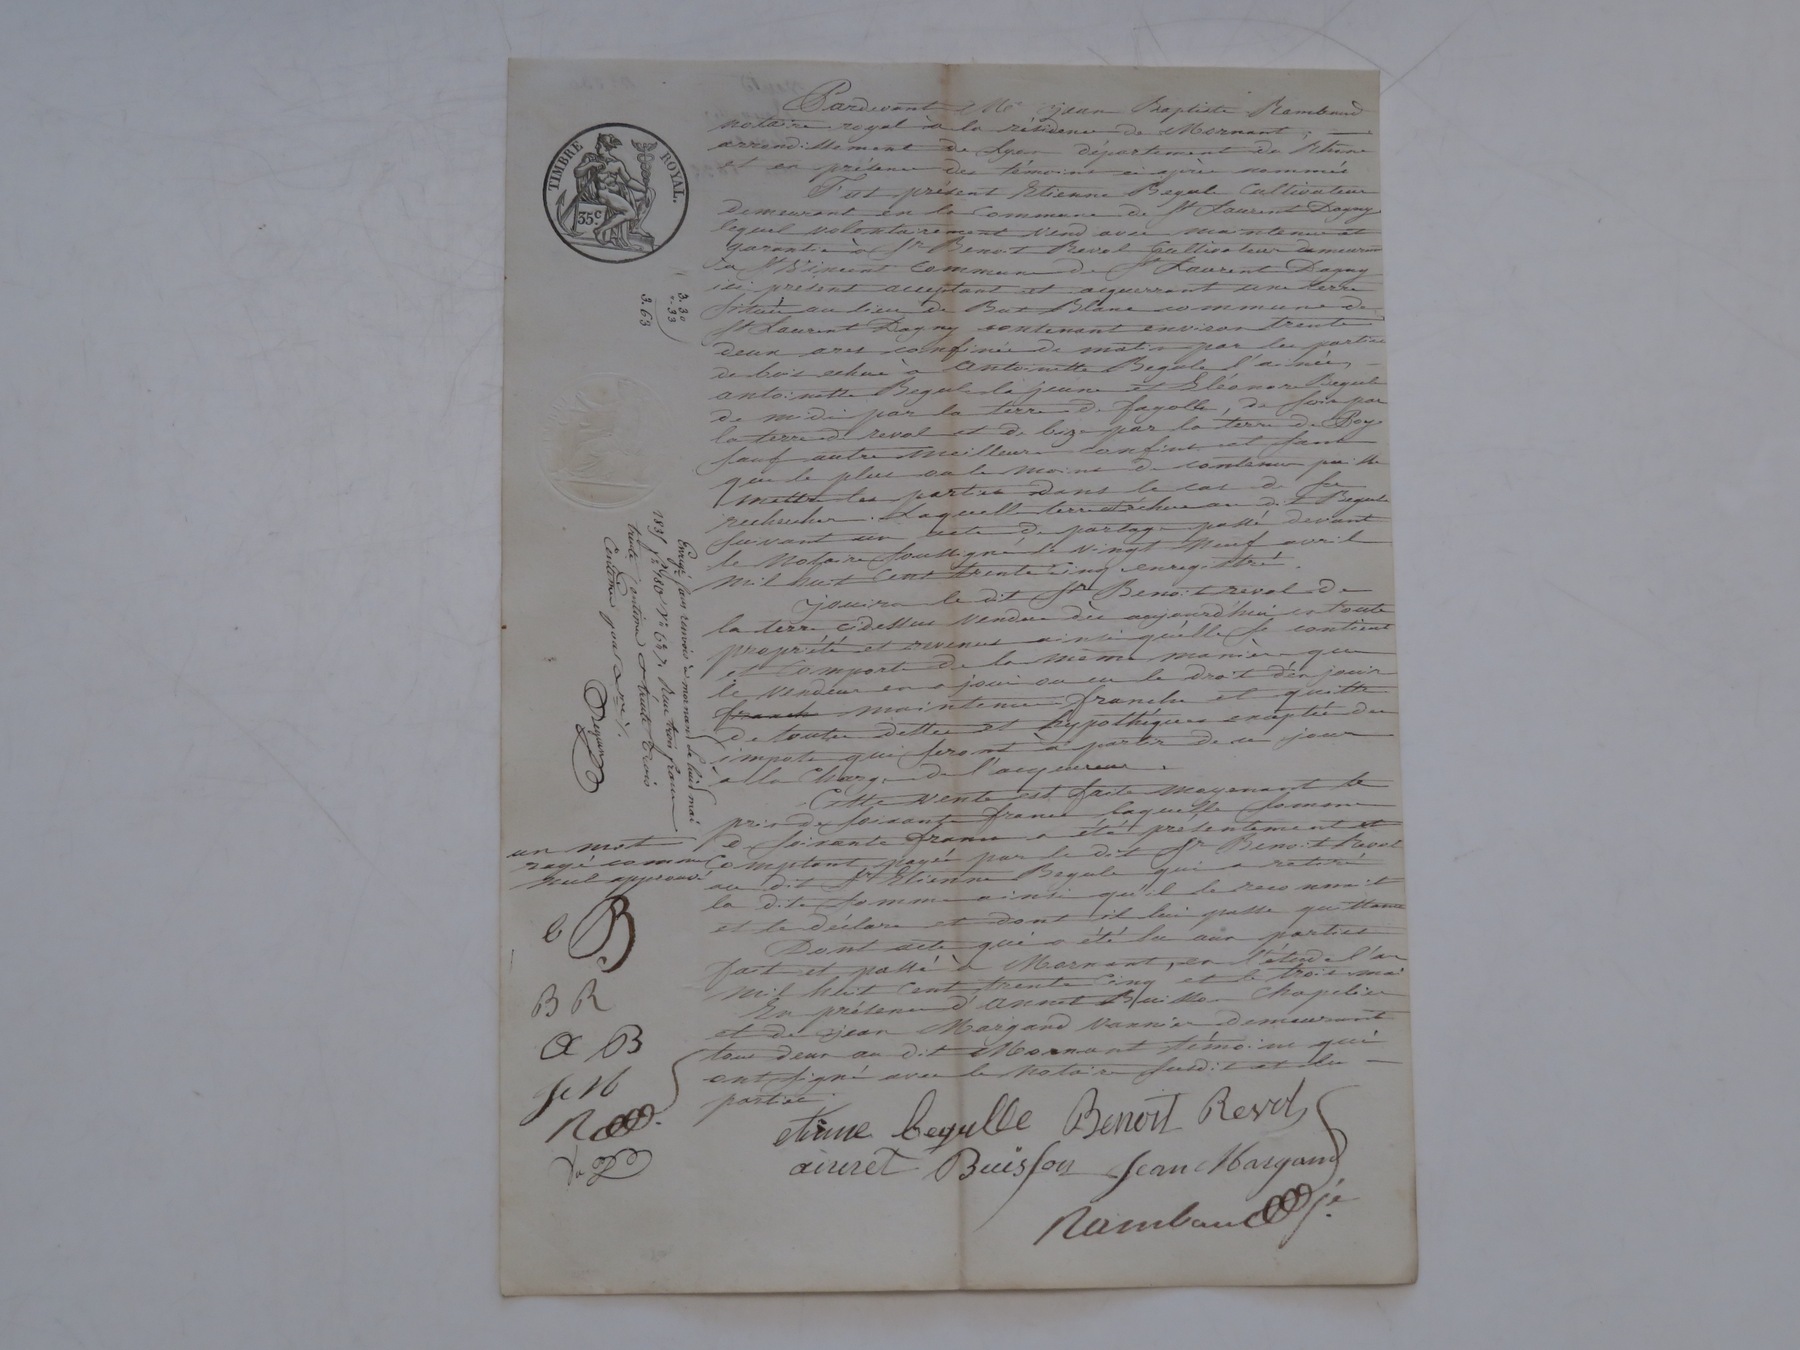 Pardevant Me Jean Baptiste Rambaud
notaire royal à la résidence de Mornant, —
arrondissement de Lyon département du Rhône
et en présence des témoins ci après nommés
Fut présent Etienne Begule Cultivateur
demeurant en la Commune de St Laurent Dagny
lequel volontairement vend avec maintenue et
garantie à Sr Benoit Revol Cultivateur demeurant
à St Vincent Commune de St Laurent Dagny
ici présent acceptant et acquerrant une terre
située au lieu de Bat Blanc commune de
St Laurent Dagny contenant environ trente
deux ares confinée de matin par les parties
de bois echue à Antoinette Begule l'ainée, —
antoinette Begule la jeune et Eléonore Begule
de midi par la terre de fayolle, de soir par
la terre de revol et de bize par la terre de Boy
sauf autre meilleurs confins et sans
que le plus ou le moins de contenue puisse
mettre les parties dans le cas de se
rechercher. Laquelle terre est échue au dit Begule
suivant un acte de partage passé devant
le Notaire soussigné le vingt neuf avril
mil huit cent trente cinq enregistré.
jouira le dit Sr Benoit revol de
la terre cidessus vendue dès aujourd'hui en toute
propriété et revenus ainsi qu'elle se contient
et comporte de la même manière que
le vendeur en a joui ou eu le droit d'en jouir
franche maintenue franche et quitte
de toutes dettes et hypothèques exceptée des
impots qui seront à partir de ce jour
à la charge de l'acquéreur.
Cette vente est faite moyenant le
prix de soixante francs laquelle somme
de soixante francs a été présentement et
Comptant payée par le dit Sr Benoit Revol
au dit Sr Etienne Begule qui a retiré
la dite somme ainsi qu'il le reconnait
et le déclare et dont il lui passe quittance
Dont acte qui a été lu aux parties
fait et passé à Mornant, en l'étude l'an
mil huit cent trente cinq et le trois mai
En présence d'Annet Buisson Chapelier
et de jean Margand Vannier demeurant
tous deux au dit Mornant témoins qui
ont signé avec le Notaire susdit et les —
parties.
etiene begulle Benoit Revol
annet Buisson Jean Margand
Rambaud
TIMBRE ROYAL.
35c
3.30
".33
3.63
Enregé sans renvoi à mornant le huit mai
1835 fo 180 Vo Co 7. Reçu trois francs
trente Centimes et trente trois
Centimes pour
un mot
rayé comme
nul approuvé
e B
B R
a B
je M
R